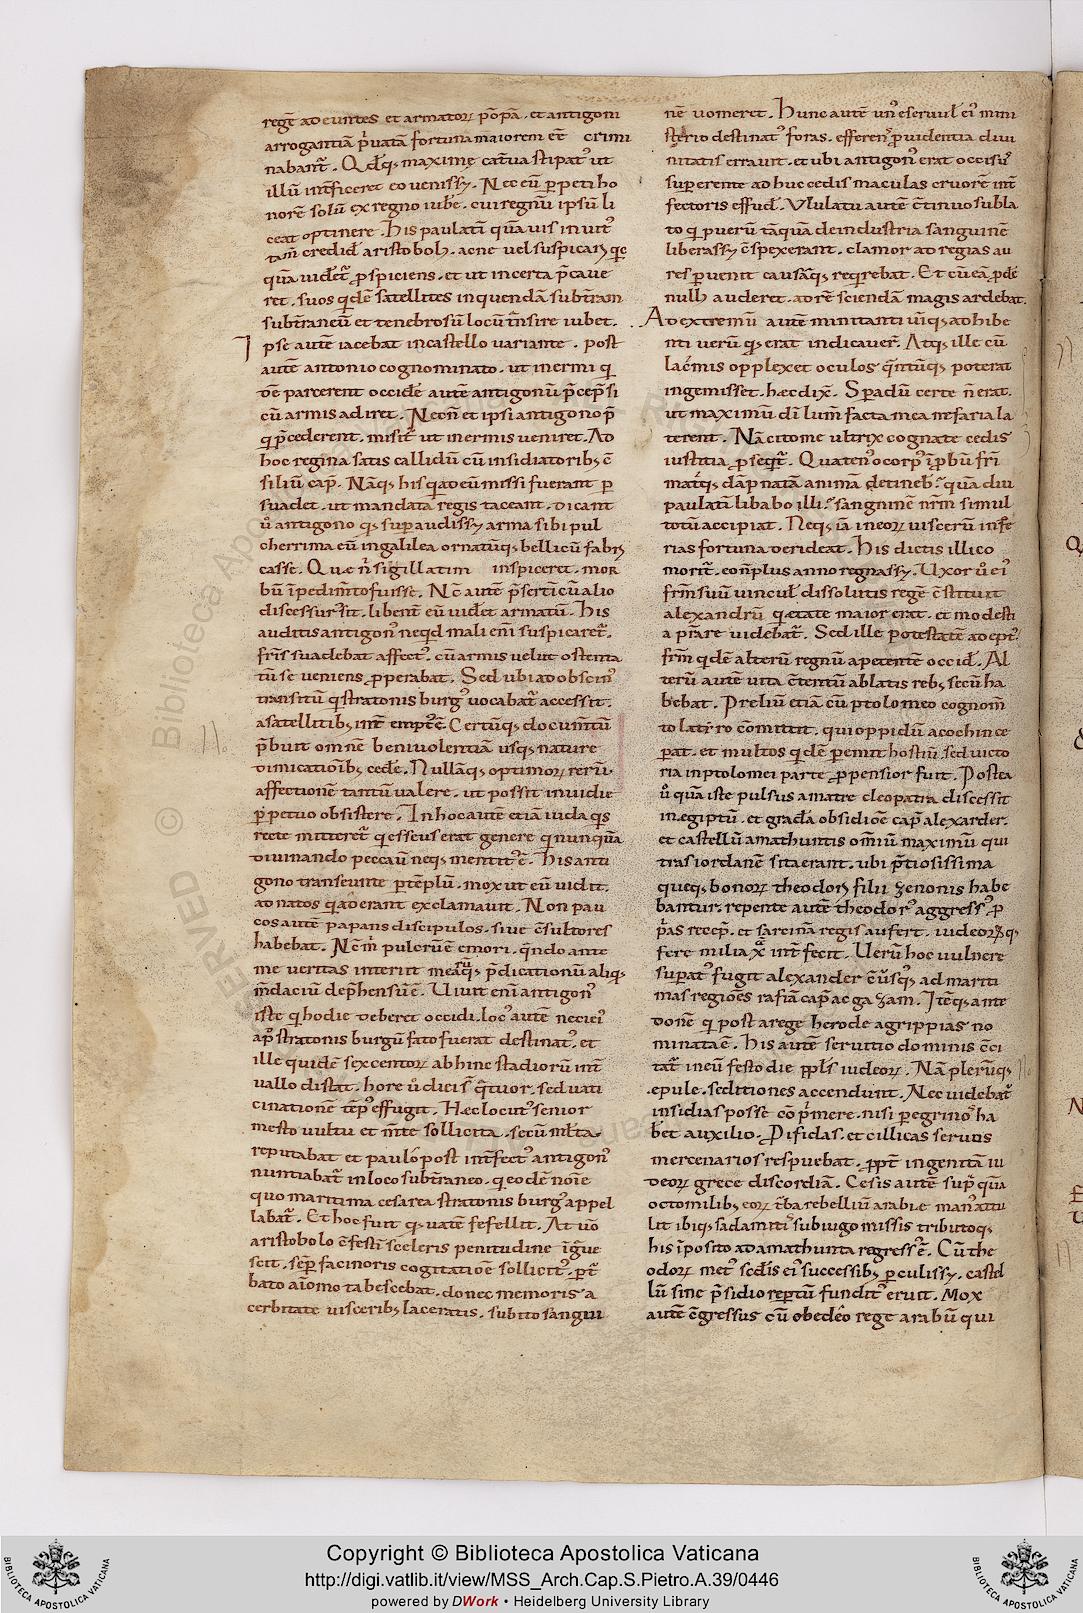 regē adeuntes et armatoꝝ pōpā. et antigoni
arrogantiā p̄uatā fortuna maiorem eē crimi
nabant᷑. Qd̛q; maxime cat̄ua stipat᷒ ut
illū int̄ficeret eo uenissꝫ. Nec eū ꝑpeti ho
norē solū ex regno iubē. cui regnū ipsū li
ceat optinere. His paulatī quāuis inuit᷒
tam̄ credid̛ aristobol᷒. ac ne uel suspicax̛ q̛c
quā uideret᷑ ꝓspiciens. et ut incerta p̄caue
ret. suos q̛dē satellites in quendā subt̄ran
subt̄raneū et tenebrosū locū t̄nsire iubet.
Ipse autē iacebat in castello uariante. post
autē antonio cognominato. ut inermi q̛
dē parcerent occidē autē antigonū p̄cep̄ si
cū armis adiret. Necn̄ et ipsi antigono p̄
q̛ p̄cederent. misit᷑ ut inermis ueniret. Ad
hoc regina satis callidū cū insidiatorib; c̄
siliū cap̄. Nāq; his q̛ ad eū missi fuerant ꝑ
suadet. ut mandata regis taceant. dicant
ů antigono q; suꝑ audissꝫ arma sibi pul
cherrima eū in galilea ornatūq; bellicū fabr̛
casse. Que n̄ sigillatim inspiceret. mor
bū īpedim̄to fuisse. Nc̄ autē p̄sertī cū alio
discessur᷒ sit. libent̄ eū uidet armatū. His
auditis antigon᷒ neq̛d mali eni suspicaret᷑.
fr̄is suadebat affect᷒. cū armis uelut ostenta
tū se ueniens ꝓperabat. Sed ubi ad obscur᷒
transitū q̛ stratonis burg᷒ uocabat᷑ accessit.
a satellitib; int̄ empt᷒ ē. Certūq; docum̄tū
p̄buit omnē beniuolentiā usq; nature
dimicatiōib; cedē. Nullāq; optimoꝝ rerū
affectionē tantū ualere. ut possit inuidie
ꝑpetuo obsistere. In hoc autē etiā iuda q̛s
recte mittet᷑ q̛ esseus erat genere q̛ nunquā
diuinando peccauı̄ neq; mentit᷒ ē. His anti
gono transeunte ꝑ tēplū. mox ut eū uidit.
ad natos q̛ aderant exclamauit. Non pau
cos autē papans discipulos. siue c̄sultores
habebat. Nc̄ m̄ pulcrū ē emori. q̛ndo ante
me ueritas interiit mearūq; p̄dictionū aliq̛
m̄daciū dep̄hensū ē. Uiuit eni antigon᷒
iste q̛ hodie deberet occidi. loc᷒ autē neci ei᷒
ap̄ stratonis burgū fato fuerat destinat᷒. et
ille quidē sexcentoꝝ abhinc stadioꝝ int̄
uallo distat. hore ů diei st̄ q̛tuor. sed uati
cinationē tēp᷒ effugit. Hæc locut᷒ senior
mesto uultu et m̄te sollicita. secū ml̄ta
reputabat et paulo post int̄fect᷒ antigon᷒
nuntiabat᷑ in loco subt̄raneo. q̛ eodē nōie
quo maritima cesarea stratonis burg᷒ appel
labat᷑. Et hoc fuit q; uatē fefellit. At uō
aristobolo c̄festī sceleris penitudine īgrue
scit. sēꝑ facinoris cogitatiōe sollicit᷒. ꝑt̄
bato aīo mo tabescebat. donec memoris a
cerbitate uiscerib; laceratis. subito sangui
nē uomeret. Hunc autē un᷒ e seruul̛ ei᷒ mini
sterio destinat᷒ foras. efferens ꝓuidentia diui
nitatis errauit. et ubi antigon᷒ erat occisu᷒
suꝑerente ad huc cedis maculas cruorē int̄
fectoris effud̛. Ululatu autē c̄tinuo subla
to q̛ puerū tāquā de industria sanguinē
liberassꝫ c̄spexerant. clamor ad regias au
res ꝑuenit causāq; req̛rebat. Et cū eā ꝓdē
null᷒ auderet. ad rē sciendā magis ardebat.
Ad extremū autē minitanti uīq; adhibe
nti uerū q̛ erat indicauer̄. Atq; ille cū
lac̛mis opplex et oculos q̛ntūq; poterat
ingemisset. hæc dix̄. Sperādū certe n̄ erat.
ut maximū dī lum̄ facta mea nefaria la
terent. Nā cito me ultrix cognate cedis
iustitia ꝓseq̛t᷑. Quaten᷒ o corp᷒ īꝓbū fr̄i
matriq; dāpnatā anima detineb̄. quā diu
paulatī libabo illis sanguinē nr̄m simul
totū accipiat. Neq; iā in eoꝝ uiscerū infe
rias fortuna derideat. His dictis illico
morit᷑. eo n̄ plus anno regnassꝫ. Uxor ů ei᷒
frm̄ suū uincul̛ dissolutis regē c̄stituit
alexandrū q̛ etate maior erat. et modesti
a p̄stare uidebat᷑. Sed ille potestatē adept᷒
frm̄ q̛dē alterū regnū apetentē occid̛. Al
terū autē uita c̄tentū ablatis reb; secū ha
bebat. Preliū etiā cū ptolomeo cognom̄
to latyro cōmittit. qui oppidū acochin ce
perat. et multos q̛dē ꝑemit hostiū. sed uicto
ria in ptolomei parte ꝓpensior fuit. Postea
ů quā iste pulsus a matre cleopatra discessit
in egiptū. et gradā obsidiōe cap̄ alexarder.
et castellū amathuntis om̄iū maximū qui
tras iordanē sita erant. ubi p̄tiosissima
queq; bonoꝝ theodori filii zenonis habe
bantur. repente autē theodor᷒ aggress᷒ ꝓ
p̄as recep̄. et sarcinā regis aufert. iudeoꝝq;
fere milia x̄ int̄fecit. Uerū hoc uulnere
suꝑat᷒ fugit alexander c̄ůsq; ad mariti
mas regiōes rafiā cap̄ ac gazam. Itēq; ante
donē q̛ post a rege herode agrippias no
minata ē. His autē seruitio dominis c̄ci
tat᷑ in eū festo die ppl̄s iudeoꝝ. Nā plerūq;
epule seditiones accendunt. Nec uidebat᷑
insidias posse cōp̄mere. nisi ꝑegrino᷒ ha
bet auxilio. Pisidas. et cillicas seruos
mercenarios respuebat. ꝓpt̄ ingenitā iu
deoꝝ grece discordiā. Cesis autē supra quā
octo milib; eoꝝ t̄ba rebelliū arabie man᷒ attu
lit ibiq; galaditis subiugo missis tributoq;
his īposito ad amathunta regress᷒ ē. Cū the
odoꝝ met᷒ secl̄is ei᷒ successib; ꝑculissꝫ. castel
lū sine p̄sidio reꝑtū fundit᷒ eruit. Mox
autē c̄gressus cū obedeo rege arabū qui
Copyright © Biblioteca Apostolica Vaticana
http://digi.vatlib.it/view/MSS_Arch.Cap.S.Pietro.A.39/0446
powered by DWork • Heidelberg University Library